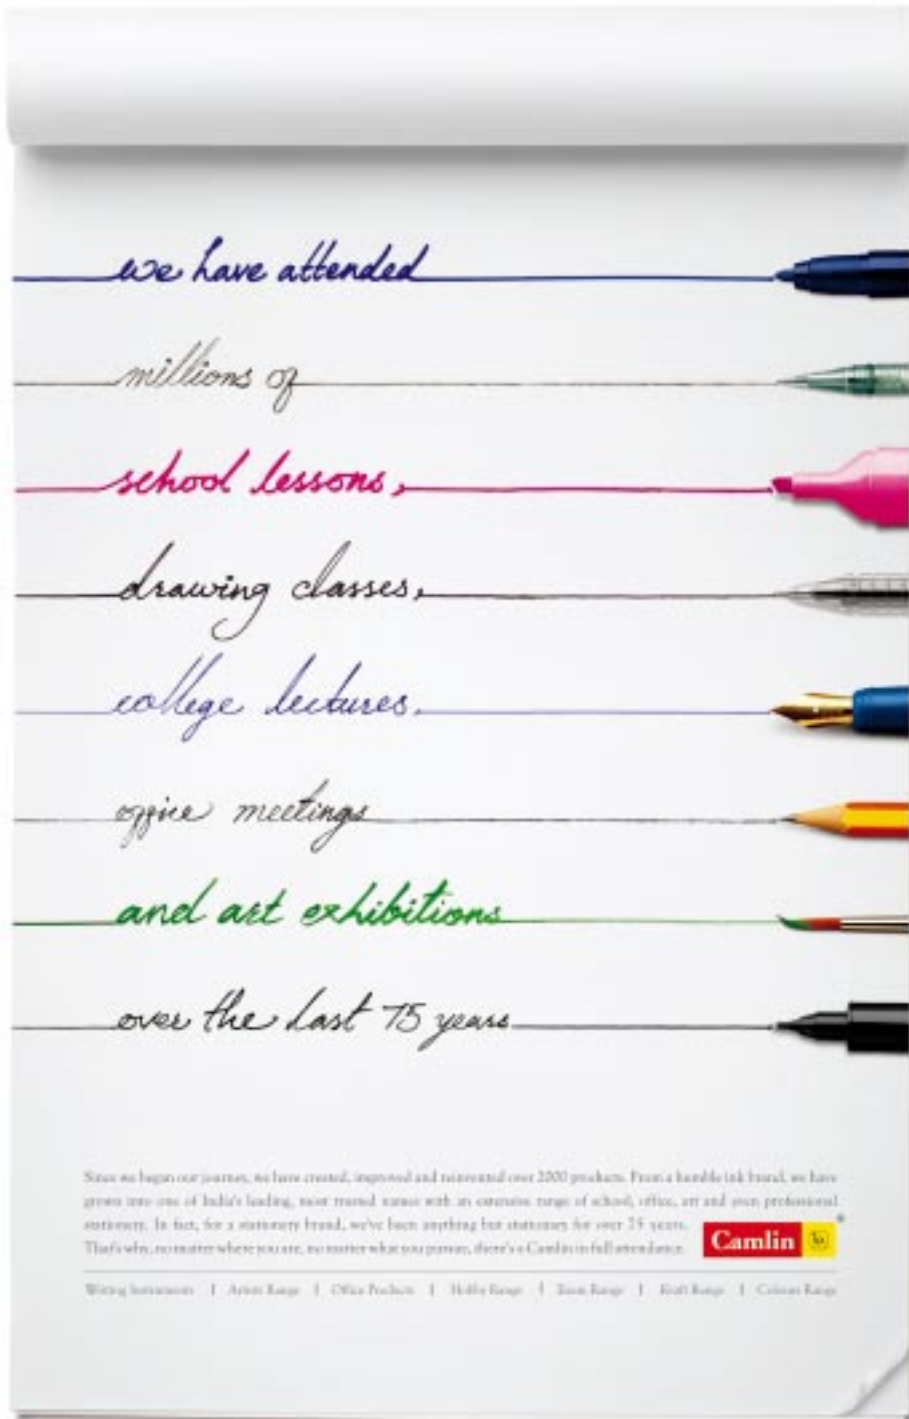 we have attended
millions of
school lessons,
drawing classes,
college lectures,
office meetings
and art exhibitions
over the last 75 years
Since we began our journey, we have created, improved and reinvented over 2000 products. From a humble ink brand, we have
grown into one of India's leading, most trusted names with an extensive range of school, office, art and even professional
stationery. In fact, for a stationery brand, we've been anything but stationary for over 75 years.
That's why, no matter where you are, no matter what you pursue, there's a Camlin in full attendance.
Camlin
Writing Instruments | Artists Range | Office Products | Hobby Range | Exam Range | Kraft Range | Colours Range